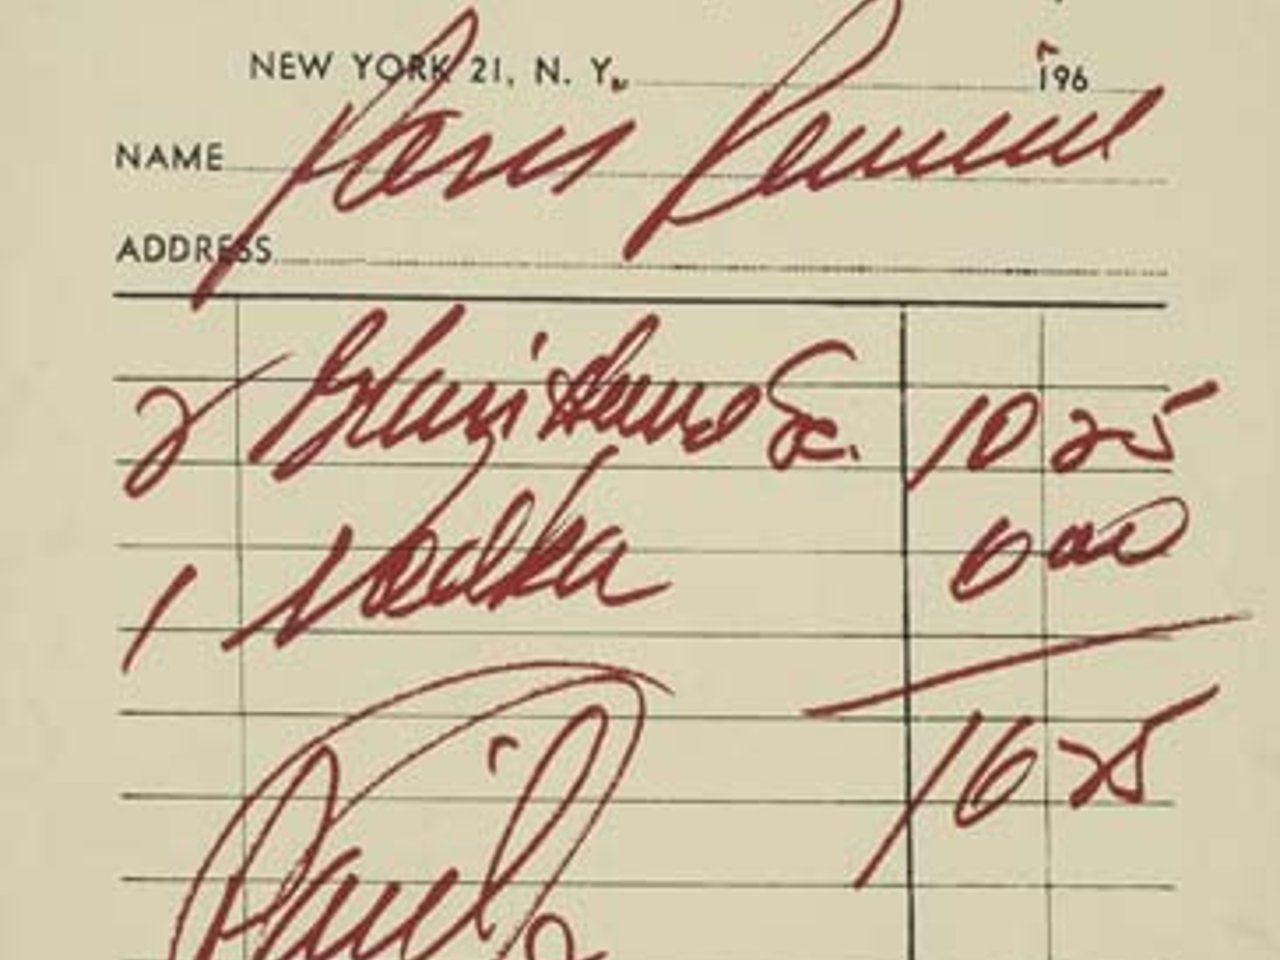 NEW YORK 21, N. Y. 196
NAME Paris Review
ADDRESS
2 Sc. 10 25
1 Vodka 6 00
16 25
Paid